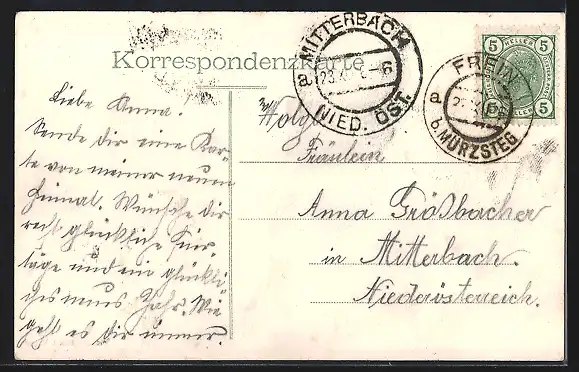 Korrespondenzkarte
MITTERBACH
a 23. 6
NIED. ÖST.
FREIN
a
b. MÜRZSTEG
5 HELLER 5
5 5
Liebe Anna.
Sende dir eine Kar-
te von meiner neuen
Heimat. Wünsche dir
recht glückliche Feier-
tage und ein glückli-
ches neues Jahr. Wie
geht es dir immer.
Fräulein
Anna Größbacher
in Mitterbach.
Niederösterreich.